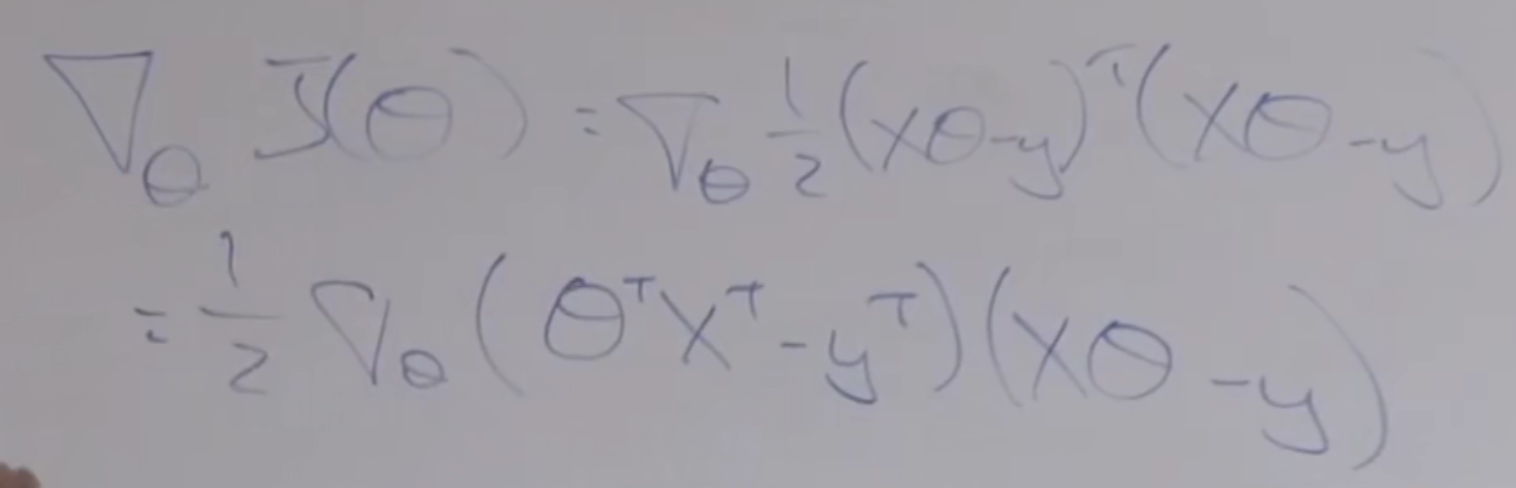 ∇_θ J(θ) = ∇_θ 1/2 (Xθ-y)^T (Xθ-y)
= 1/2 ∇_θ (θ^T X^T - y^T)(Xθ-y)